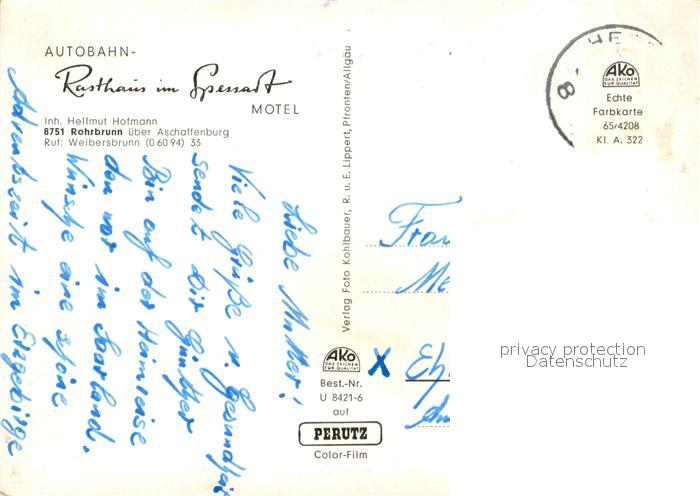 AUTOBAHN-
Rasthaus im Spessart
MOTEL
Inh. Hellmut Hofmann
8751 Rohrbrunn über Aschaffenburg
Ruf: Weibersbrunn (0 60 94) 33
Liebe Mutter!
Viele Grüße u. Gesundheit
sendet Dir Günther
Bin auf der Heimreise
den war im Saarland.
Wünsche eine schöne
Adventszeit im Erzgebirge
Verlag Foto Kohlbauer, R. u. E. Lippert, Pfronten/Allgäu
AKO
DAS ZEICHEN
FÜR QUALITÄT
Best.-Nr.
U 8421-6
auf
PERUTZ
Color-Film
8
AKO
DAS ZEICHEN
FÜR QUALITÄT
Echte
Farbkarte
65/4208
Kl. A. 322
Frau
Me
X
privacy protection
Datenschutz